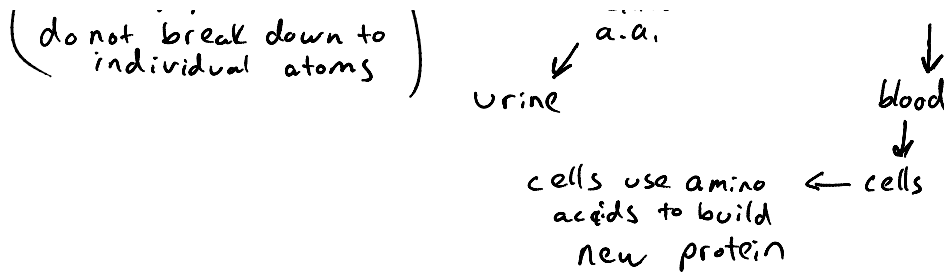 do not break down to
individual atoms
a.a.
urine
blood
cells use amino
acids to build
new protein
cells